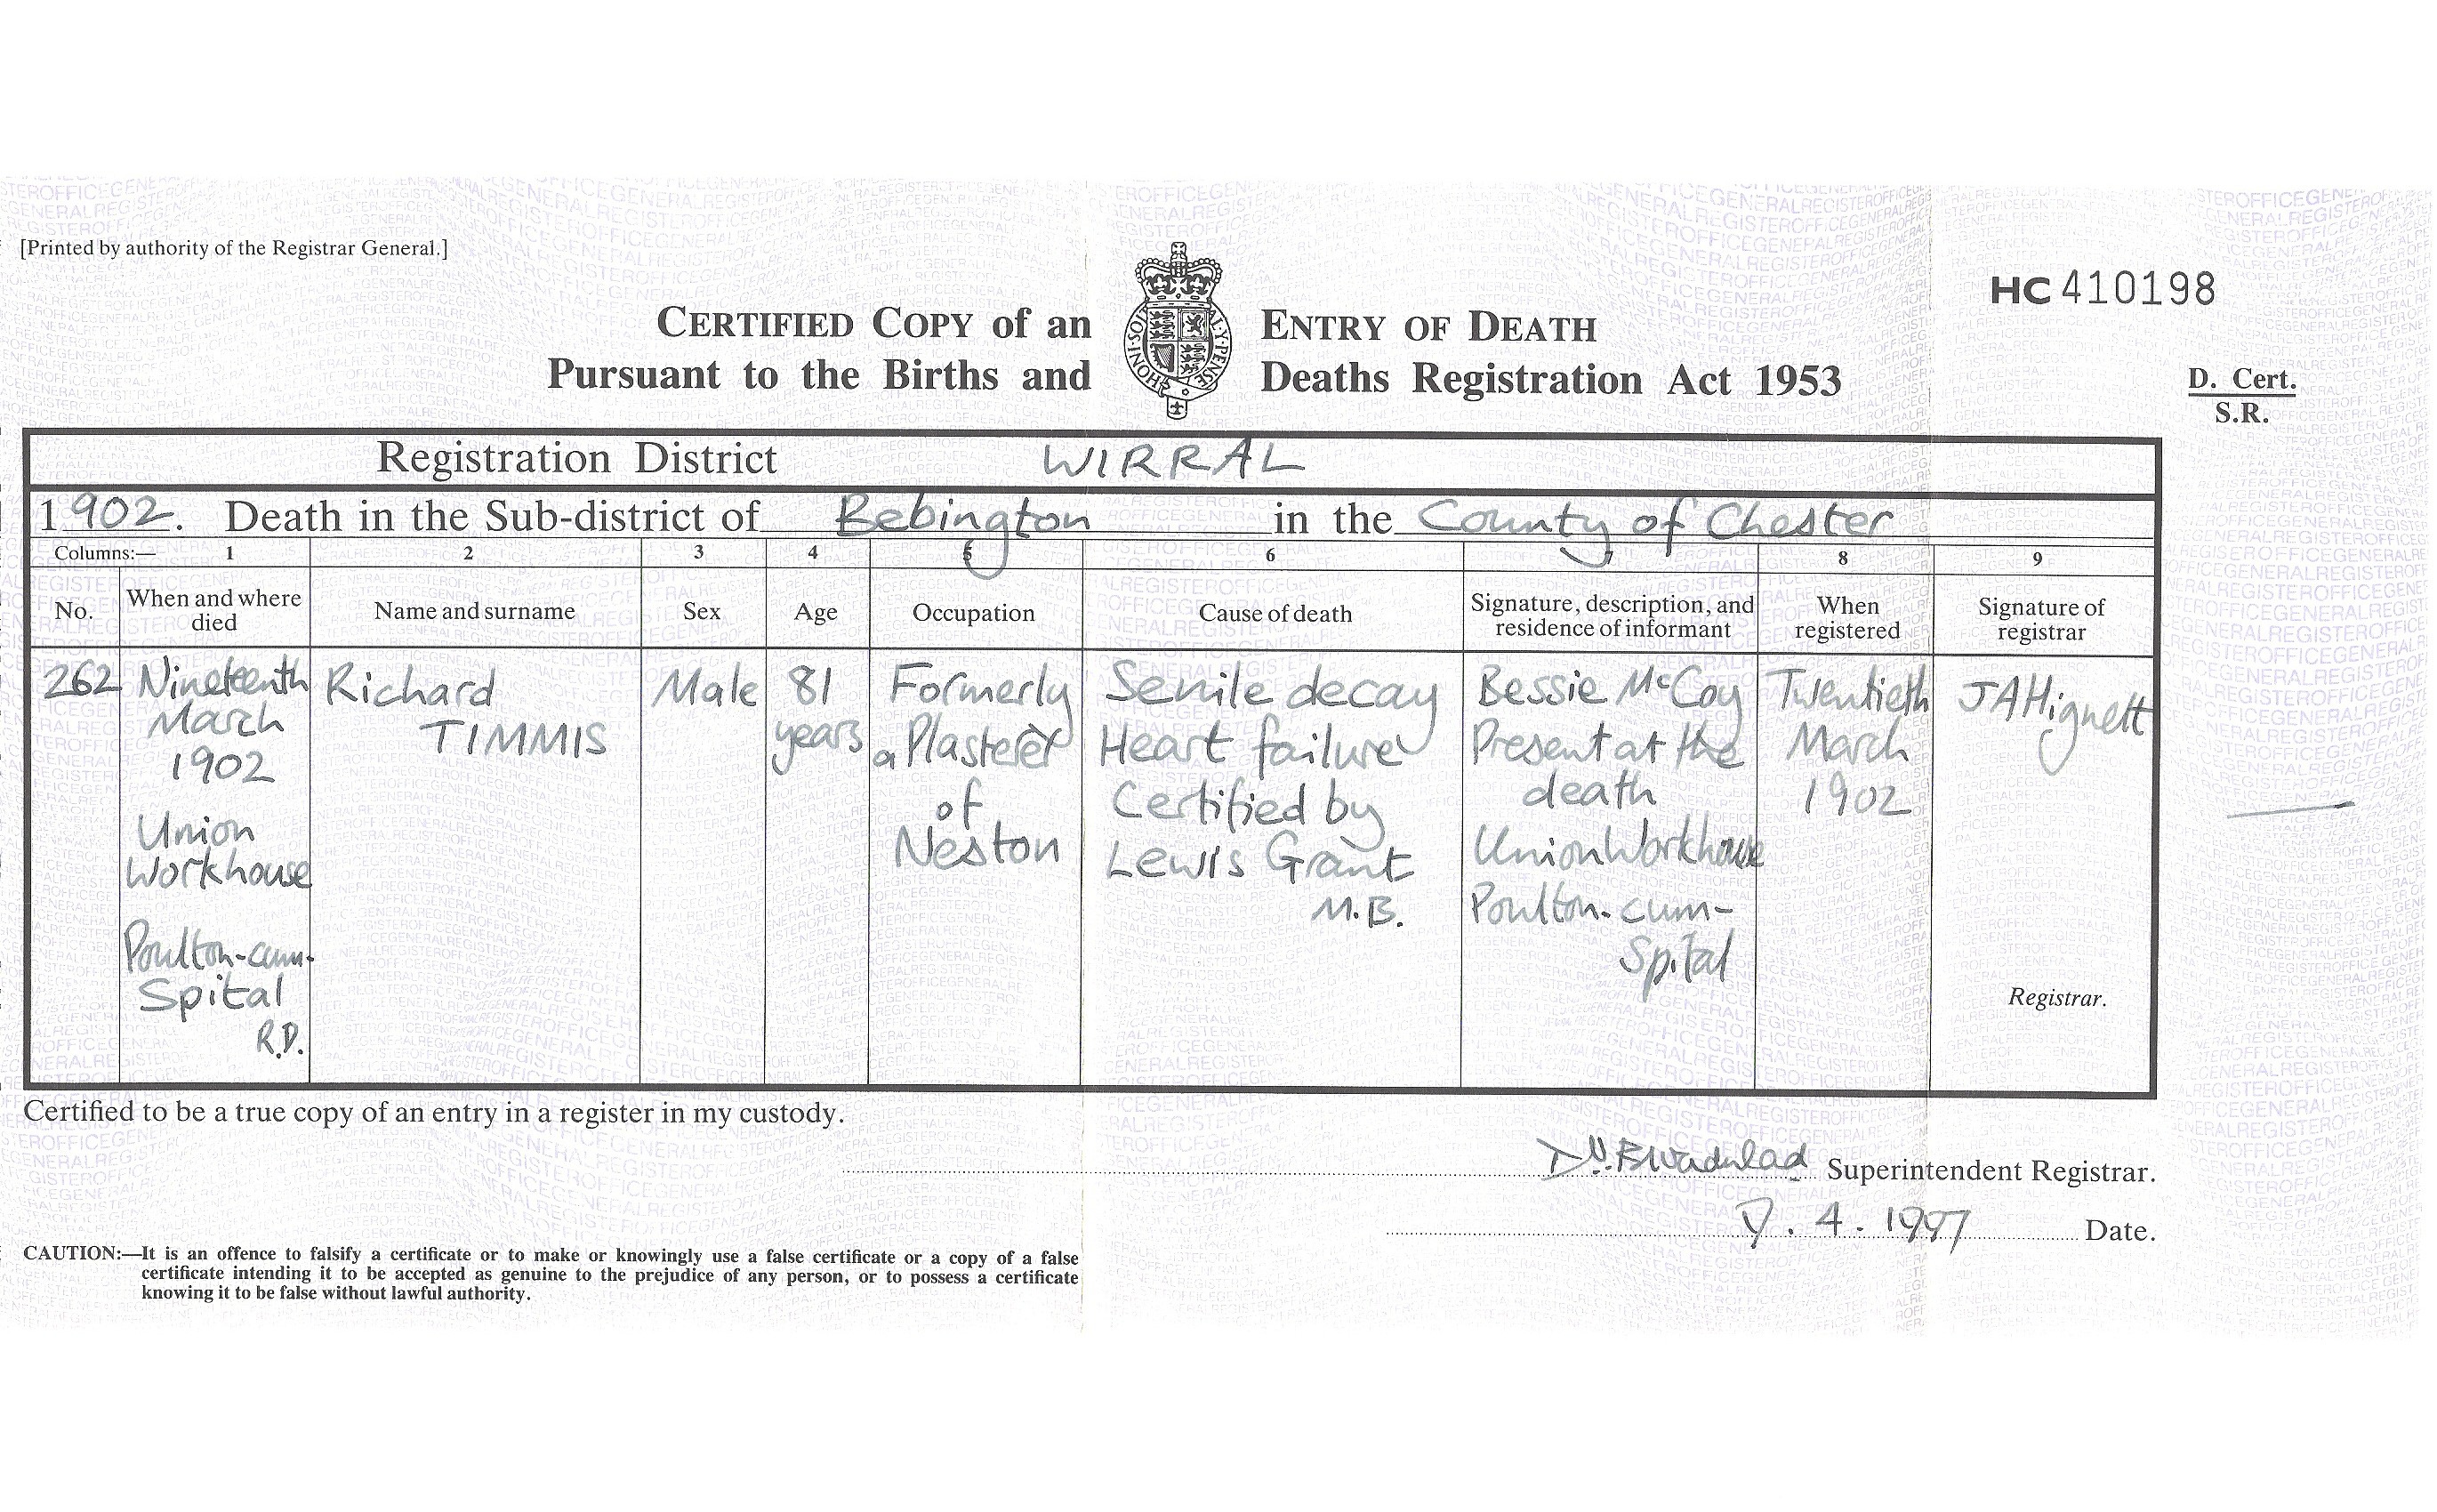 [Printed by authority of the Registrar General.]
HC 410198
CERTIFIED COPY of an ENTRY OF DEATH
Pursuant to the Births and Deaths Registration Act 1953
HONI·SOIT·QUI·MAL·Y·PENSE
D. Cert.
S.R.
Registration District WIRRAL
1902. Death in the Sub-district of Bebington in the County of Chester
Columns:— 1 2 3 4 5 6 7 8 9
No.
When and where
died
Name and surname
Sex
Age
Occupation
Cause of death
Signature, description, and
residence of informant
When
registered
Signature of
registrar
262
Nineteenth
March
1902
Union
Workhouse
Poulton-cum-
Spital
R.D.
Richard
TIMMIS
Male
81
years
Formerly
a Plasterer
of
Neston
Senile decay
Heart failure
Certified by
Lewis Grant
M.B.
Bessie McCoy
Present at the
death
Union Workhouse
Poulton-cum-
Spital
Twentieth
March
1902
JAHignett
Registrar.
Certified to be a true copy of an entry in a register in my custody.
Superintendent Registrar.
4. 1997 Date.
CAUTION:—It is an offence to falsify a certificate or to make or knowingly use a false certificate or a copy of a false
certificate intending it to be accepted as genuine to the prejudice of any person, or to possess a certificate
knowing it to be false without lawful authority.